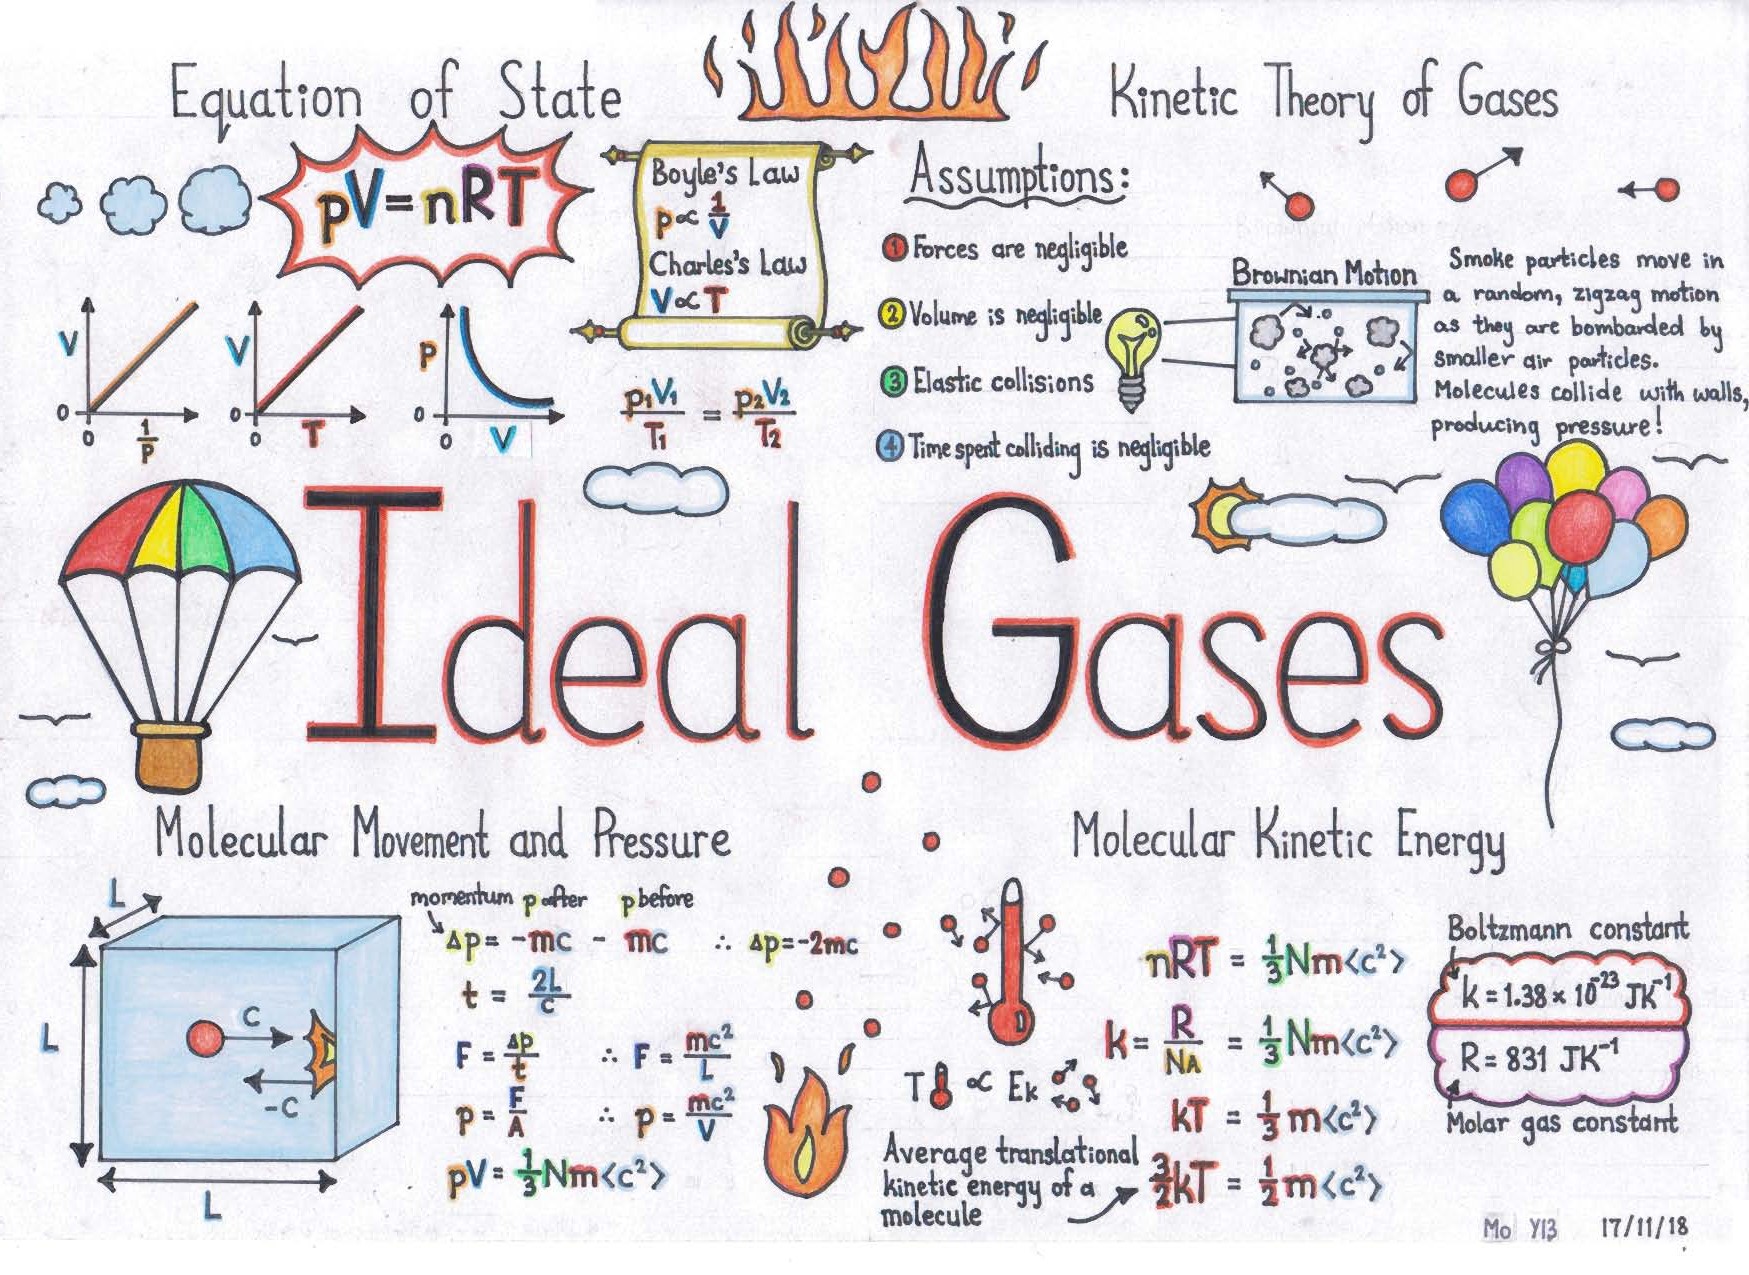 Equation of State
pV=nRT
Boyle's Law
p∝1/V
Charles's Law
V∝T
V
0
0
1/P
V
0
0
T
P
0
0
V
p₁V₁/T₁ = p₂V₂/T₂
Kinetic Theory of Gases
Assumptions:
1 Forces are negligible
2 Volume is negligible
3 Elastic collisions
4 Time spent colliding is negligible
Brownian Motion
Smoke particles move in
a random, zigzag motion
as they are bombarded by
smaller air particles.
Molecules collide with walls,
producing pressure!
Ideal Gases
Molecular Movement and Pressure
L
L
L
c
-c
momentum p after p before
Δp = -mc - mc ∴ Δp=-2mc
t = 2L/c
F = Δp/t ∴ F = mc²/L
p = F/A ∴ p = mc²/V
pV = 1/3 Nm<c²>
Molecular Kinetic Energy
T ∝ Ek
Average translational
kinetic energy of a
molecule
nRT = 1/3 Nm<c²>
k = R/NA = 1/3 Nm<c²>
kT = 1/3 m<c²>
3/2 kT = 1/2 m<c²>
Boltzmann constant
k = 1.38 × 10⁻²³ JK⁻¹
R = 831 JK⁻¹
Molar gas constant
Mo Y13 17/11/18